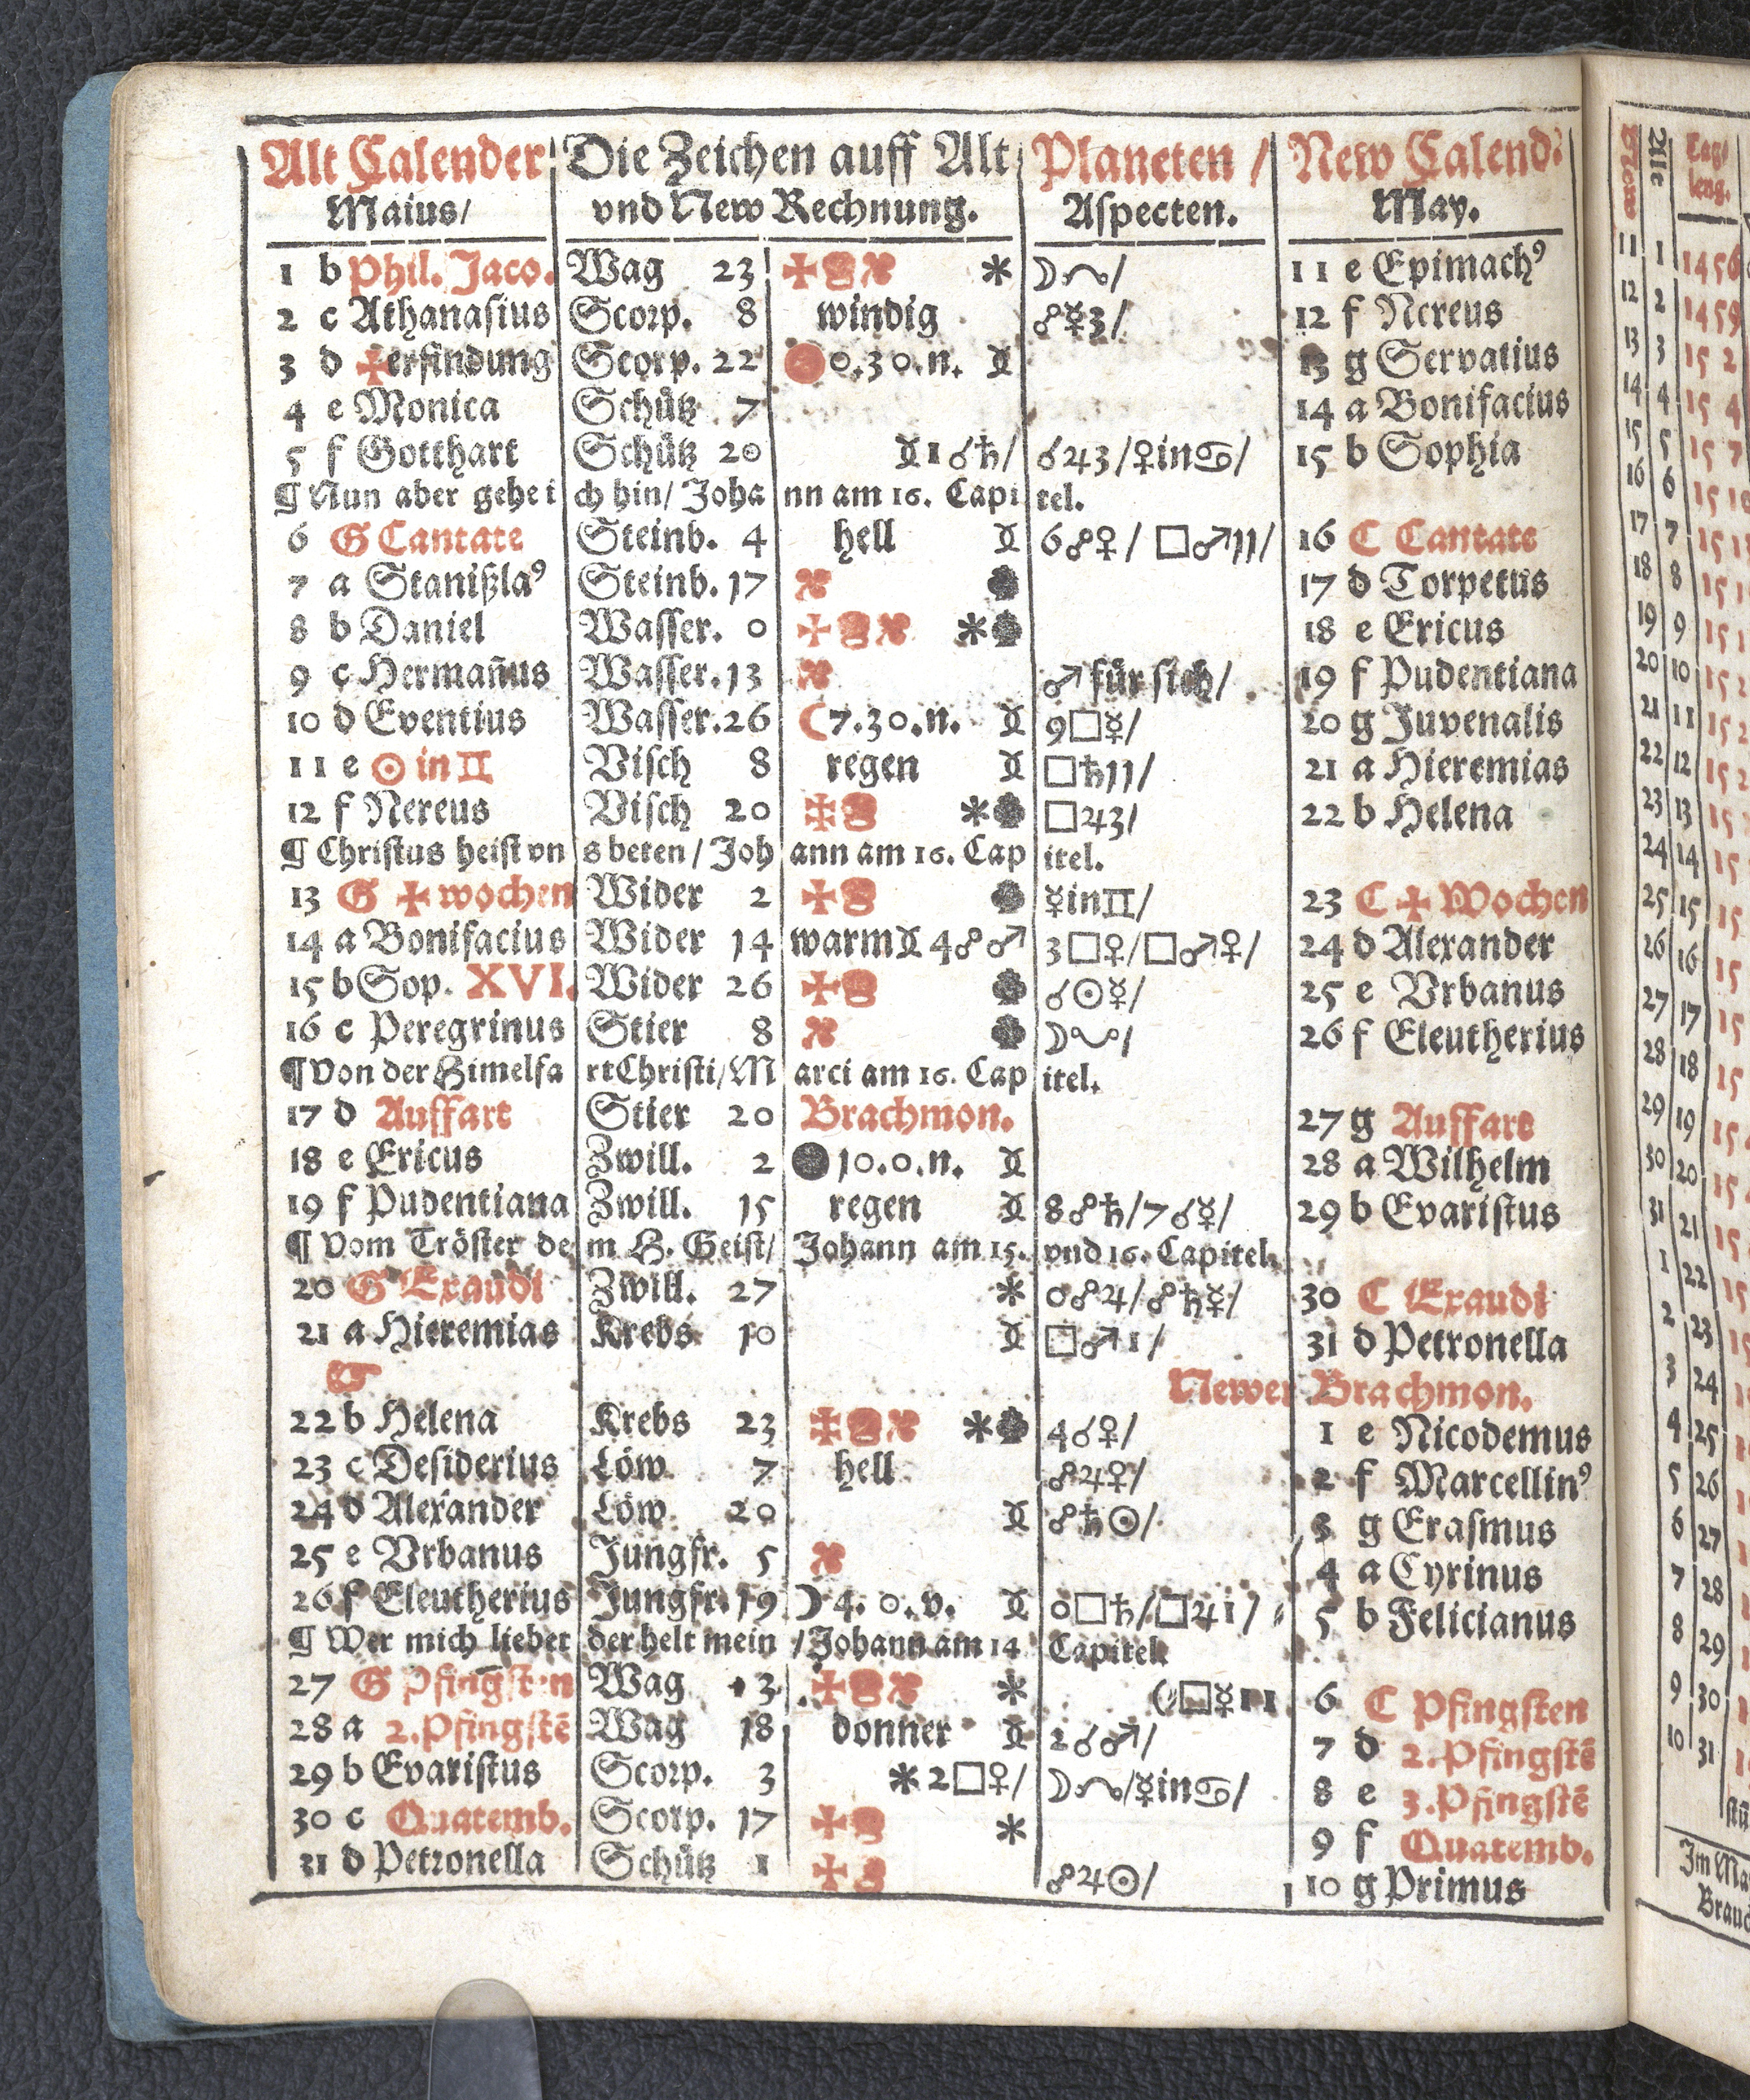 Alt Calender Die Zeichen auff Alt Planeten / New Calend:
Maius/ vnd New Rechnung. Aspecten. May.
1 b Phil. Jaco. Wag 23 ✠ * ☽☊/ 11 e Epimachꝰ
2 c Athanasius Scorp. 8 windig ☍☿3/ 12 f Nereus
3 d ✠erfindung Scorp. 22 0.30.n. 13 g Servatius
4 e Monica Schütz 7 14 a Bonifacius
5 f Gotthart Schütz 20 1☌♄/ ☌♃3/♀in♋/ 15 b Sophia
¶ Nun aber gehe ich hin/ Johann am 16. Capitel.
6 G Cantate Steinb. 4 hell 6☍♀/ □♂11/ 16 C Cantate
7 a Stanißlaꝰ Steinb. 17 17 d Torpetus
8 b Daniel Wasser. 0 ✠ * 18 e Ericus
9 c Hermañus Wasser. 13 ♂ für sich/ 19 f Pudentiana
10 d Eventius Wasser. 26 ☾7.30.n. 9□☿/ 20 g Juvenalis
11 e ☉ in ♊ Visch 8 regen □♄11/ 21 a Hieremias
12 f Nereus Visch 20 ✠ * □♃3/ 22 b Helena
¶ Christus heist vns beten / Johann am 16. Capitel.
13 G ✠ wochen Wider 2 ✠ ☿in♊/ 23 C ✠ Wochen
14 a Bonifacius Wider 14 warm 4☍♂ 3□♀/□♂♀/ 24 d Alexander
15 b Sop. XVI. Wider 26 ✠ ☌☉☿/ 25 e Vrbanus
16 c Peregrinus Stier 8 ☽☋/ 26 f Eleutherius
¶ Von der Himelfart Christi/ Marci am 16. Capitel.
17 d Auffart Stier 20 Brachmon. 27 g Auffart
18 e Ericus Zwill. 2 ●10.0.n. 28 a Wilhelm
19 f Pudentiana Zwill. 15 regen 8☍♄/7☌☿/ 29 b Evaristus
¶ Vom Tröster dem H. Geist/ Johann am 15. vnd 16. Capitel.
20 G Exaudi Zwill. 27 * 0☍♃/☍♄☿/ 30 C Exaudi
21 a Hieremias Krebs 10 □♂1/ 31 d Petronella
☞ Newer Brachmon.
22 b Helena Krebs 23 ✠ * 4☌♀/ 1 e Nicodemus
23 c Desiderius Löw 7 hell ☍♃♀/ 2 f Marcellinꝰ
24 d Alexander Löw 20 ☍♄☉/ 3 g Erasmus
25 e Vrbanus Jungfr. 5 4 a Cyrinus
26 f Eleutherius Jungfr. 19 ☽4.0.v. 0□♄/□♃1/ 5 b Felicianus
¶ Wer mich liebet der helt mein / Johann am 14 Capitel.
27 G Pfingsten Wag 3 ✠ * (□☿11 6 C Pfingsten
28 a 2.Pfingstē Wag 18 donner 2☌♂/ 7 d 2.Pfingstē
29 b Evaristus Scorp. 3 *2□♀/ ☽☊/☿in♋/ 8 e 3.Pfingstē
30 c Quatemb. Scorp. 17 ✠ * 9 f Quatemb.
31 d Petronella Schütz 1 ✠ ☍♃☉/ 10 g Primus
New Alte Tag/
leng.
11 1 1456
12 2 1459
13 3 15 2
14 4 15 4
15 5 15 7
16 6 15 10
17 7
18 8
19 9
20 10
21 11
22 12
23 13
24 14
25 15
26 16
27 17
28 18
29 19
30 20
31 21
1 22
2 23
3 24
4 25
5 26
6 27
7 28
8 29
9 30
10 31